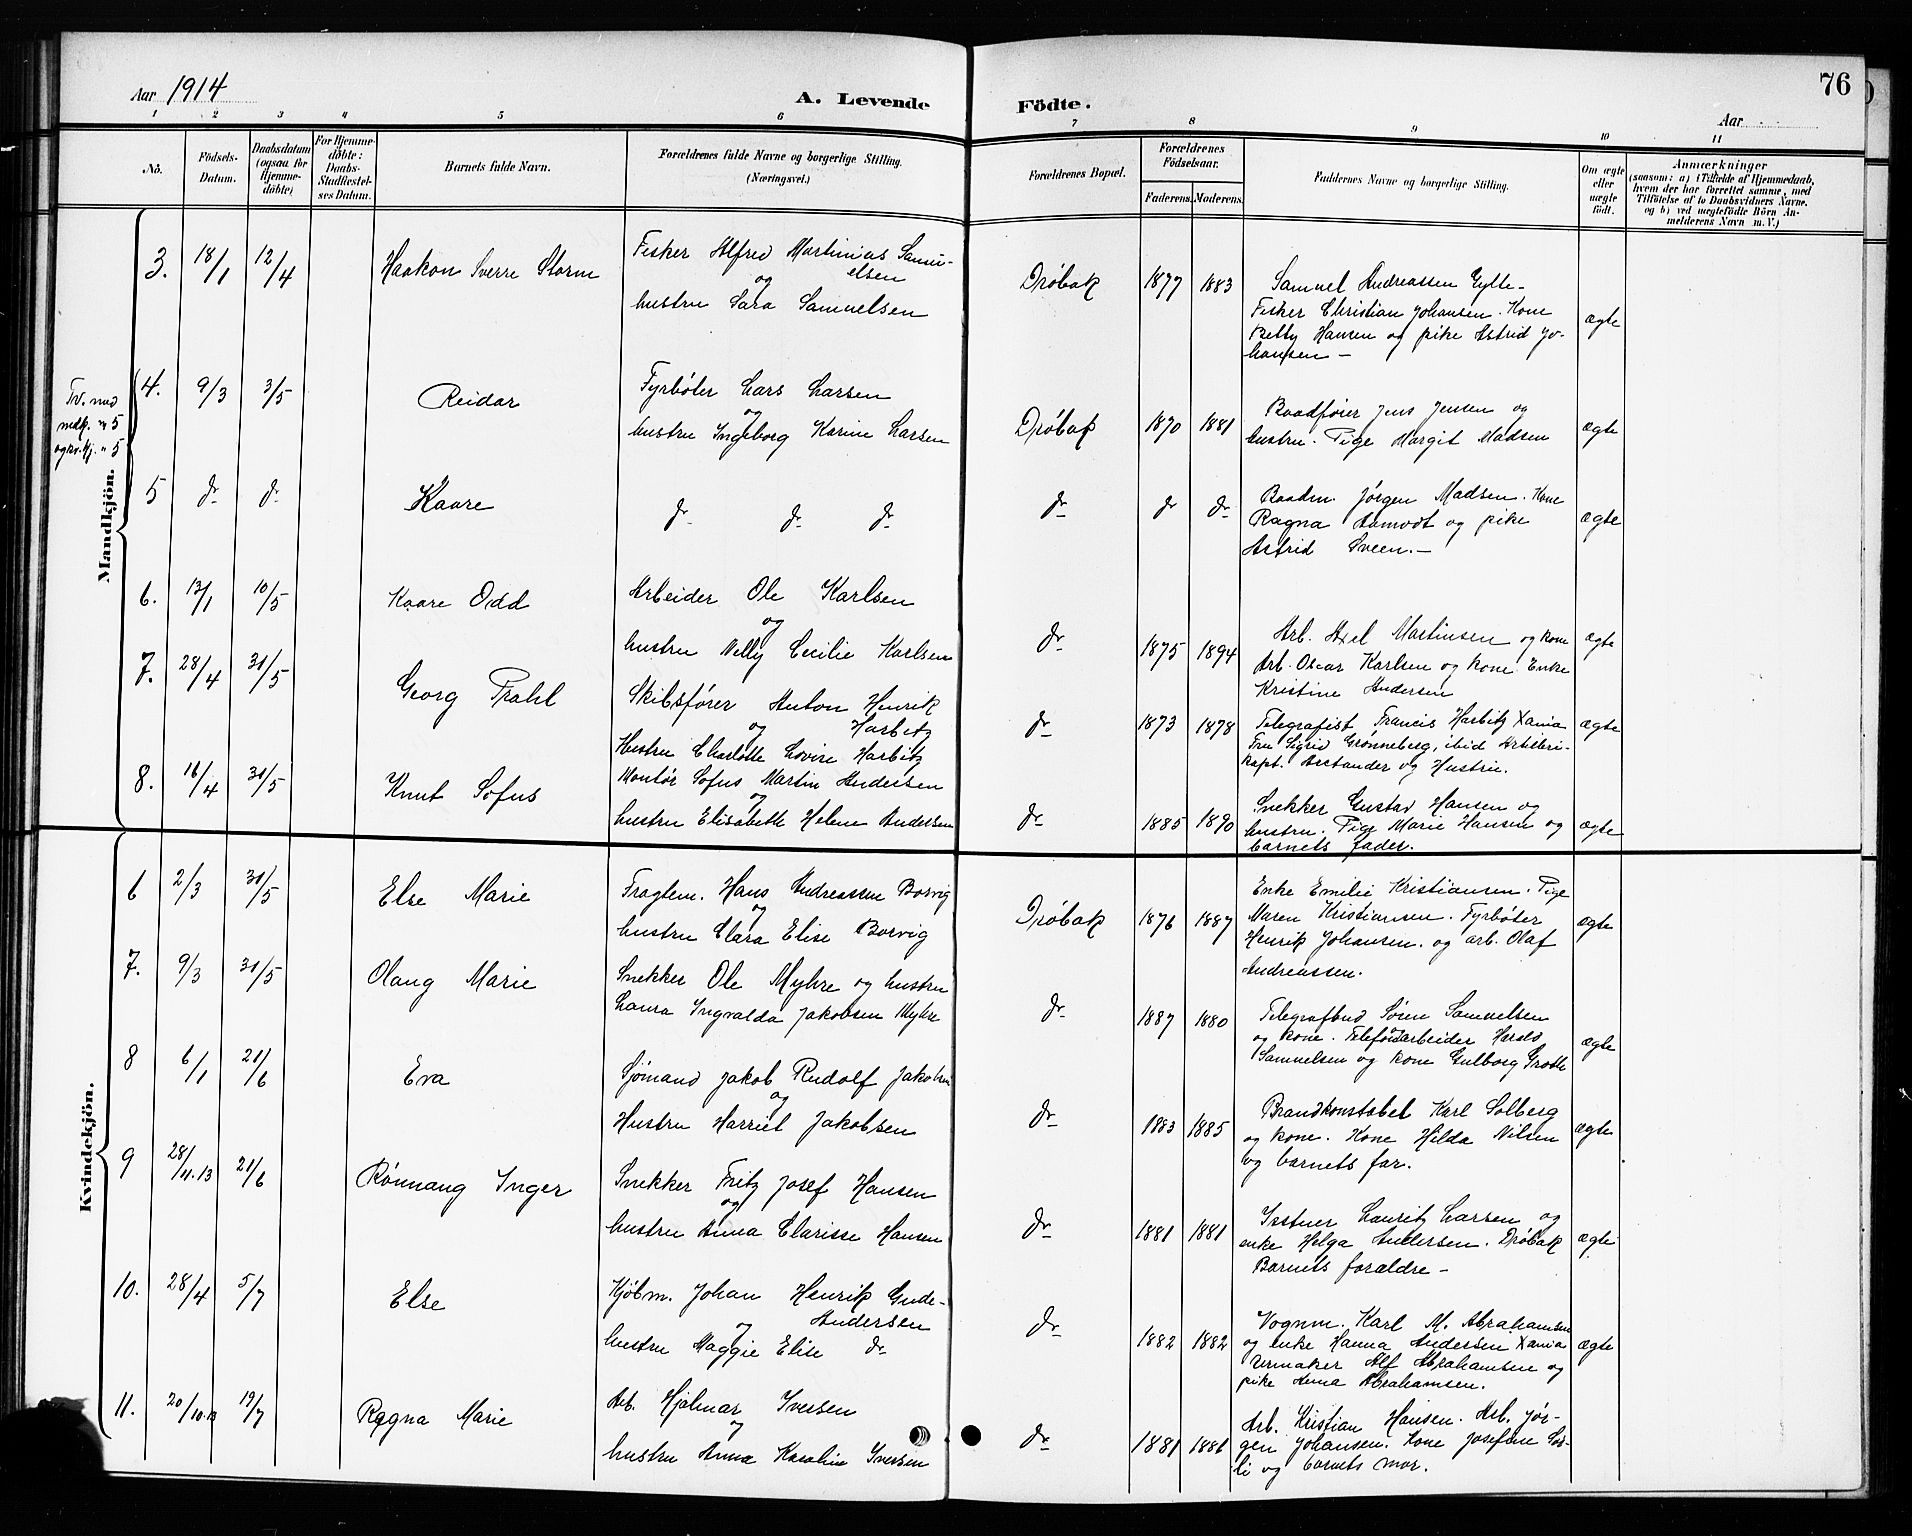 76
Aar 1914
A. Levende Födte.
Aar
1 2 3 4 5 6 7 8 9 10 11
No.
Födsels-
Datum.
Daabsdatum
(ogsaa for
Hjemme-
döbte)
For Hjemme-
döbte:
Daabs-
Stadfæstel-
ses Datum.
Barnets fulde Navn.
Forældrenes fulde Navne og borgerlige Stilling.
(Næringsvei.)
Forældrenes Bopæl.
Forældrenes
Födselsaar.
Faderens. Moderens.
Faddernes Navne og borgerlige Stilling.
Om ægte
eller
uægte
födt.
Anmærkninger
(saasom: a) i Tilfælde af Hjemmedaab,
hvem der har forrettet samme, med
Tilföielse af to Daabsvidners Navne.
og b) ved uægtefödte Börn An-
melderens Navn m. V.)
Mandkjön.
3. 18/1 12/4 Haakon Sverre Storm
Fisker Alfred Martinias Samu-
og elsen
hustru Sara Samuelsen
Drøbak 1877 1883
Samuel Andreassen Gylte-
Fisker Christian Johansen. Kone
Betty Hansen og pike Astrid Jo-
hansen –
ægte
Tv. med
mdk. n 5
4. 9/3 3/5 Reidar
Fyrbøter Lars Larsen
og
hustru Ingeborg Karine Larsen
Drøbak 1870 1881
Baadfører Jens Jensen og
hustru. Pige Margit Madsen
ægte
5 dr dr Kaare
dr dr dr
dr dr dr
Baadm. Jørgen Madsen. Kone
Ragna Aamodt og pike
Astrid Sveen. –
ægte
6. 13/1 10/5 Kaare Odd
Arbeider Ole Karlsen
og
hustru Nelly Cecilie Karlsen
dr 1875 1894
Arb. Axel Martinsen og kone
Arb. Oscar Karlsen og kone. Enke
Kristine Andersen
ægte
7. 28/4 31/5 Georg Prahl
Skibsfører Anton Henrik
og Harbitz
Hustru Charlotte Lovise Harbitz
dr 1873 1878
Telegrafist Francis Harbitz Xania
Fru Sigrid Grønneberg, ibid Artilleri-
kapt. Arstander og Hustru.
ægte
8. 16/4 31/5 Knut Sofus
Montør Sofus Martin Andersen
og
hustru Elisabeth Helene Andersen
dr 1885 1890
Snekker Gustav Hansen og
hustru. Pige Marie Hansen og
barnets fader.
ægte
Kvindekjön.
6 2/3 31/5 Else Marie
Fragtem. Hans Andreassen Borvig
og
hustru Clara Elise Borvig
Drøbak 1876 1887
Enke Emilie Kristiansen. Pige
Maren Kristiansen. Fyrbøter
Henrik Johansen. og arb. Olaf
Andreassen.
ægte
7. 9/3 31/5 Olaug Marie
Snekker Ole Myhre og hustru
Laura Ingvalda Jakobsen Myhre
dr 1887 1880
Telegrafbud Søren Samuelsen
og kone. Telefonarbeider Harald
Samuelsen og kone Gulborg Grodte
ægte
8 6/1 21/6 Eva
Sjømand Jakob Rudolf Jakobsen
og
Hustru Harriet Jakobsen
dr 1883 1885
Brandkonstabel Karl Solberg
og kone. Kone Hilda Nilsen
og barnets far.
ægte
9 28/11.13 21/6 Rønnaug Inger
Snekker Fritz Josef Hansen
og
hustru Anna Clarisse Hansen
dr 1881 1881
Isstuer Lauritz Larsen og
enke Helga Andersen. Drøbak
Barnets forældre –
ægte
10. 28/4 5/7 Else
Kjøbm. Johan Henrik Gude-
og Andersen
hustru Maggie Elise dr
dr 1882 1882
Vognm. Karl M. Abrahamsen
og enke Hanna Andersen Xania
Urmaker Alf Abrahamsen og
pike Anna Abrahamsen.
ægte
11. 20/10.13 19/7 Ragna Marie
Arb. Hjalmar Iversen
og
hustru Anna Karoline Iversen
dr 1881 1886
Arb. Kristian Hansen. Arb. Jør-
gen Johansen. Kone Josefine Sør-
li og barnets mor.